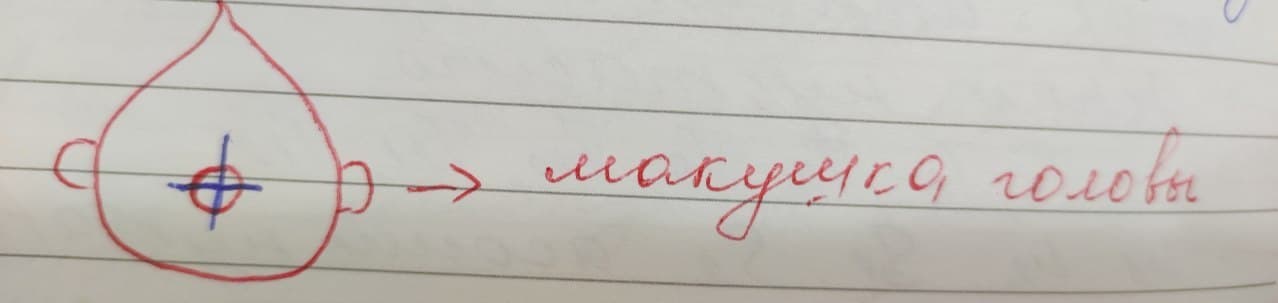 → макушка головы